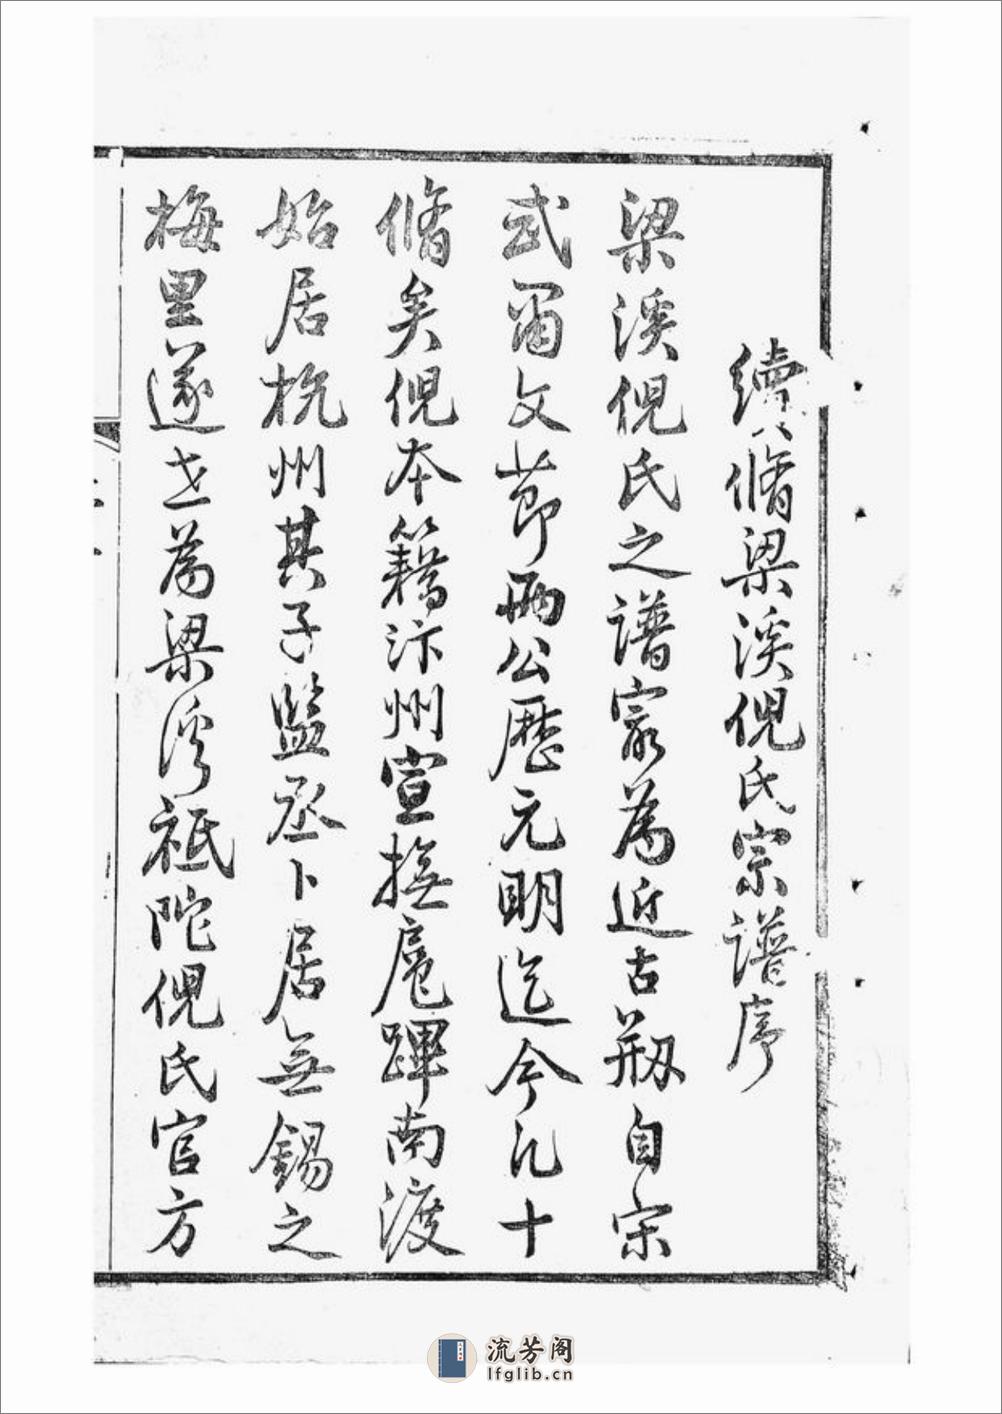 續脩梁溪倪氏宗譜序
梁溪倪氏之譜冣為近古剏自宋
式甫文莭兩公歷元明迄今凡十
脩矣倪本籍汴州宣撫扈蹕南渡
始居杭州其子監丞卜居無錫之
梅里遂世為梁溪祗陀倪氏官方
流芳阁
lfglib.cn